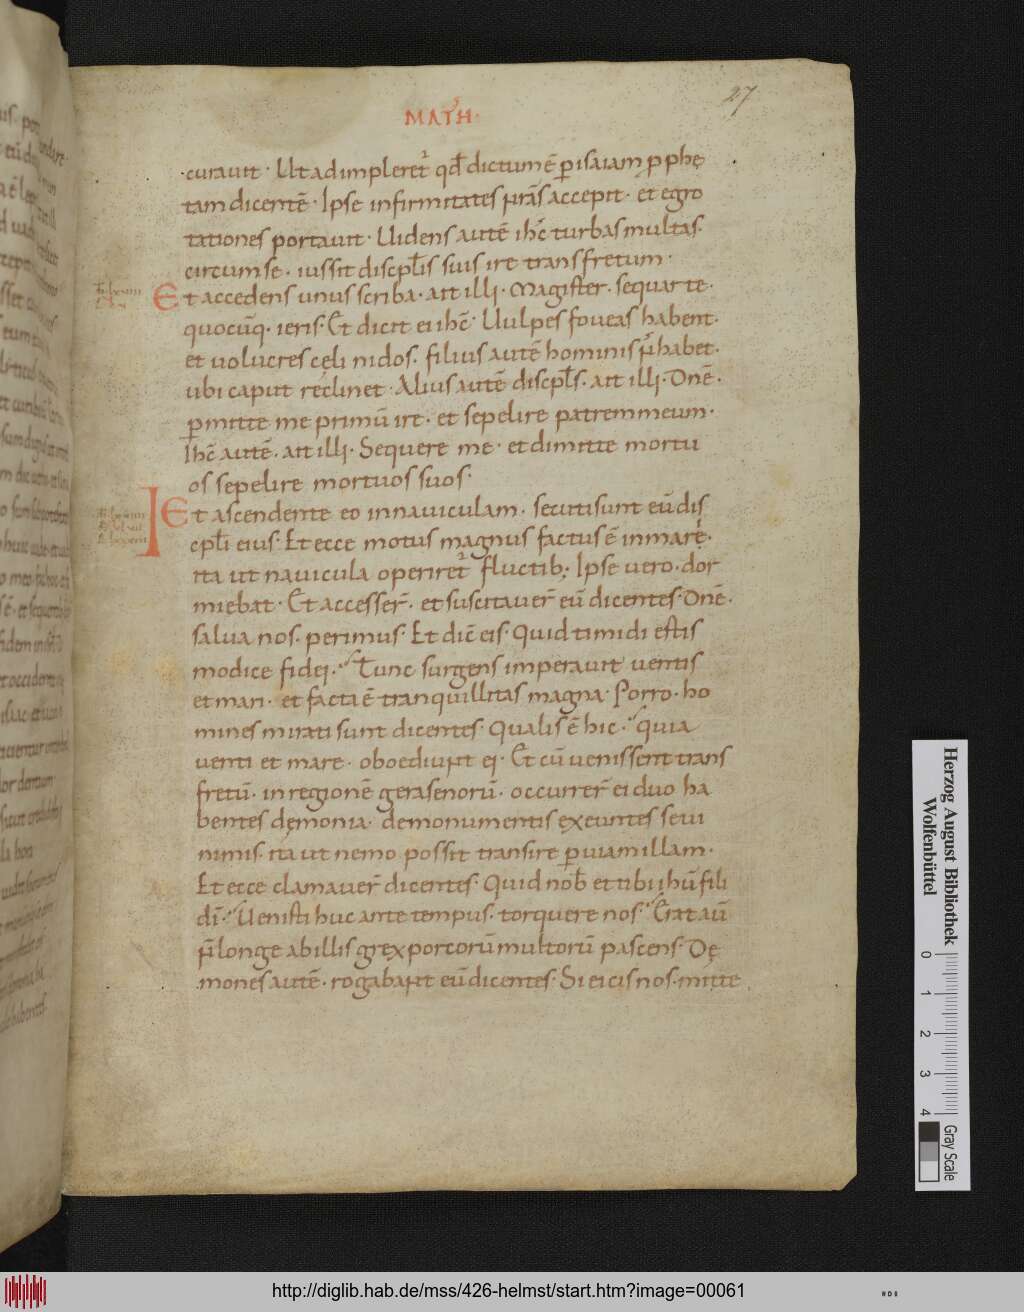 27
MATH·
curavit · Ut adimpleret᷑ qđ dictum ē ꝑ isaiam ꝓphę
tam dicentē · Ipse infirmitates nr̄as accepit · et egro
tationes portavit · Uidens autē ihc̄ turbas multas·
circum se · iussit discipl̄is suis ire trans fretum ·
Et accedens unus scriba · ait illi · Magister · sequar te ·
quocūq· ieris· Et dicit ei ihc̄· Uulpes foveas habent·
et uolucres cęli nidos· filius autē hominis ñ habet·
ubi caput reclinet · Alius autē discpl̄s· ait illi· Dnē·
ꝑmitte me primū ire · et sepelire patrem meum·
Ihc̄ autē· ait illi· Sequere me· et dimitte mortu
os sepelire mortuos suos·
Et ascendente eo in naviculam · secuti sunt eū dis
cpl̄i eius· Et ecce motus magnus factus ē in mare·
ita ut navicula operiret᷑ fluctib; Ipse vero · dor
miebat · Et accesser̄ · et suscitaver̄ eū dicentes· Dnē·
salua nos· perimus· Et dic̄ eis· Quid timidi estis
modice fidei· Tunc surgens imperavit ventis
et mari · et facta ē tranquillitas magna· Porro · ho
mines mirati sunt dicentes· Qualis ē hic · quia
venti et mare · oboediunt ei· Et cū venissent trans
fretū · in regionē gerasenorū · occurrer̄ ei duo ha
bentes dęmonia· de monumentis exeuntes sevi
nimis· ita ut nemo possit transire ꝑ viam illam·
Et ecce clamaver̄ dicentes· Quid nob̄ et tibi ihū fili
dī· Uenisti huc ante tempus· torquere nos· Erat aū
ñ longe ab illis grex porcorū multorū pascens· Dę
mones autē · rogabant eū dicentes· Si eicis nos· mitte
Herzog August Bibliothek
Wolfenbüttel
0 1 2 3 4
Gray Scale
http://diglib.hab.de/mss/426-helmst/start.htm?image=00061